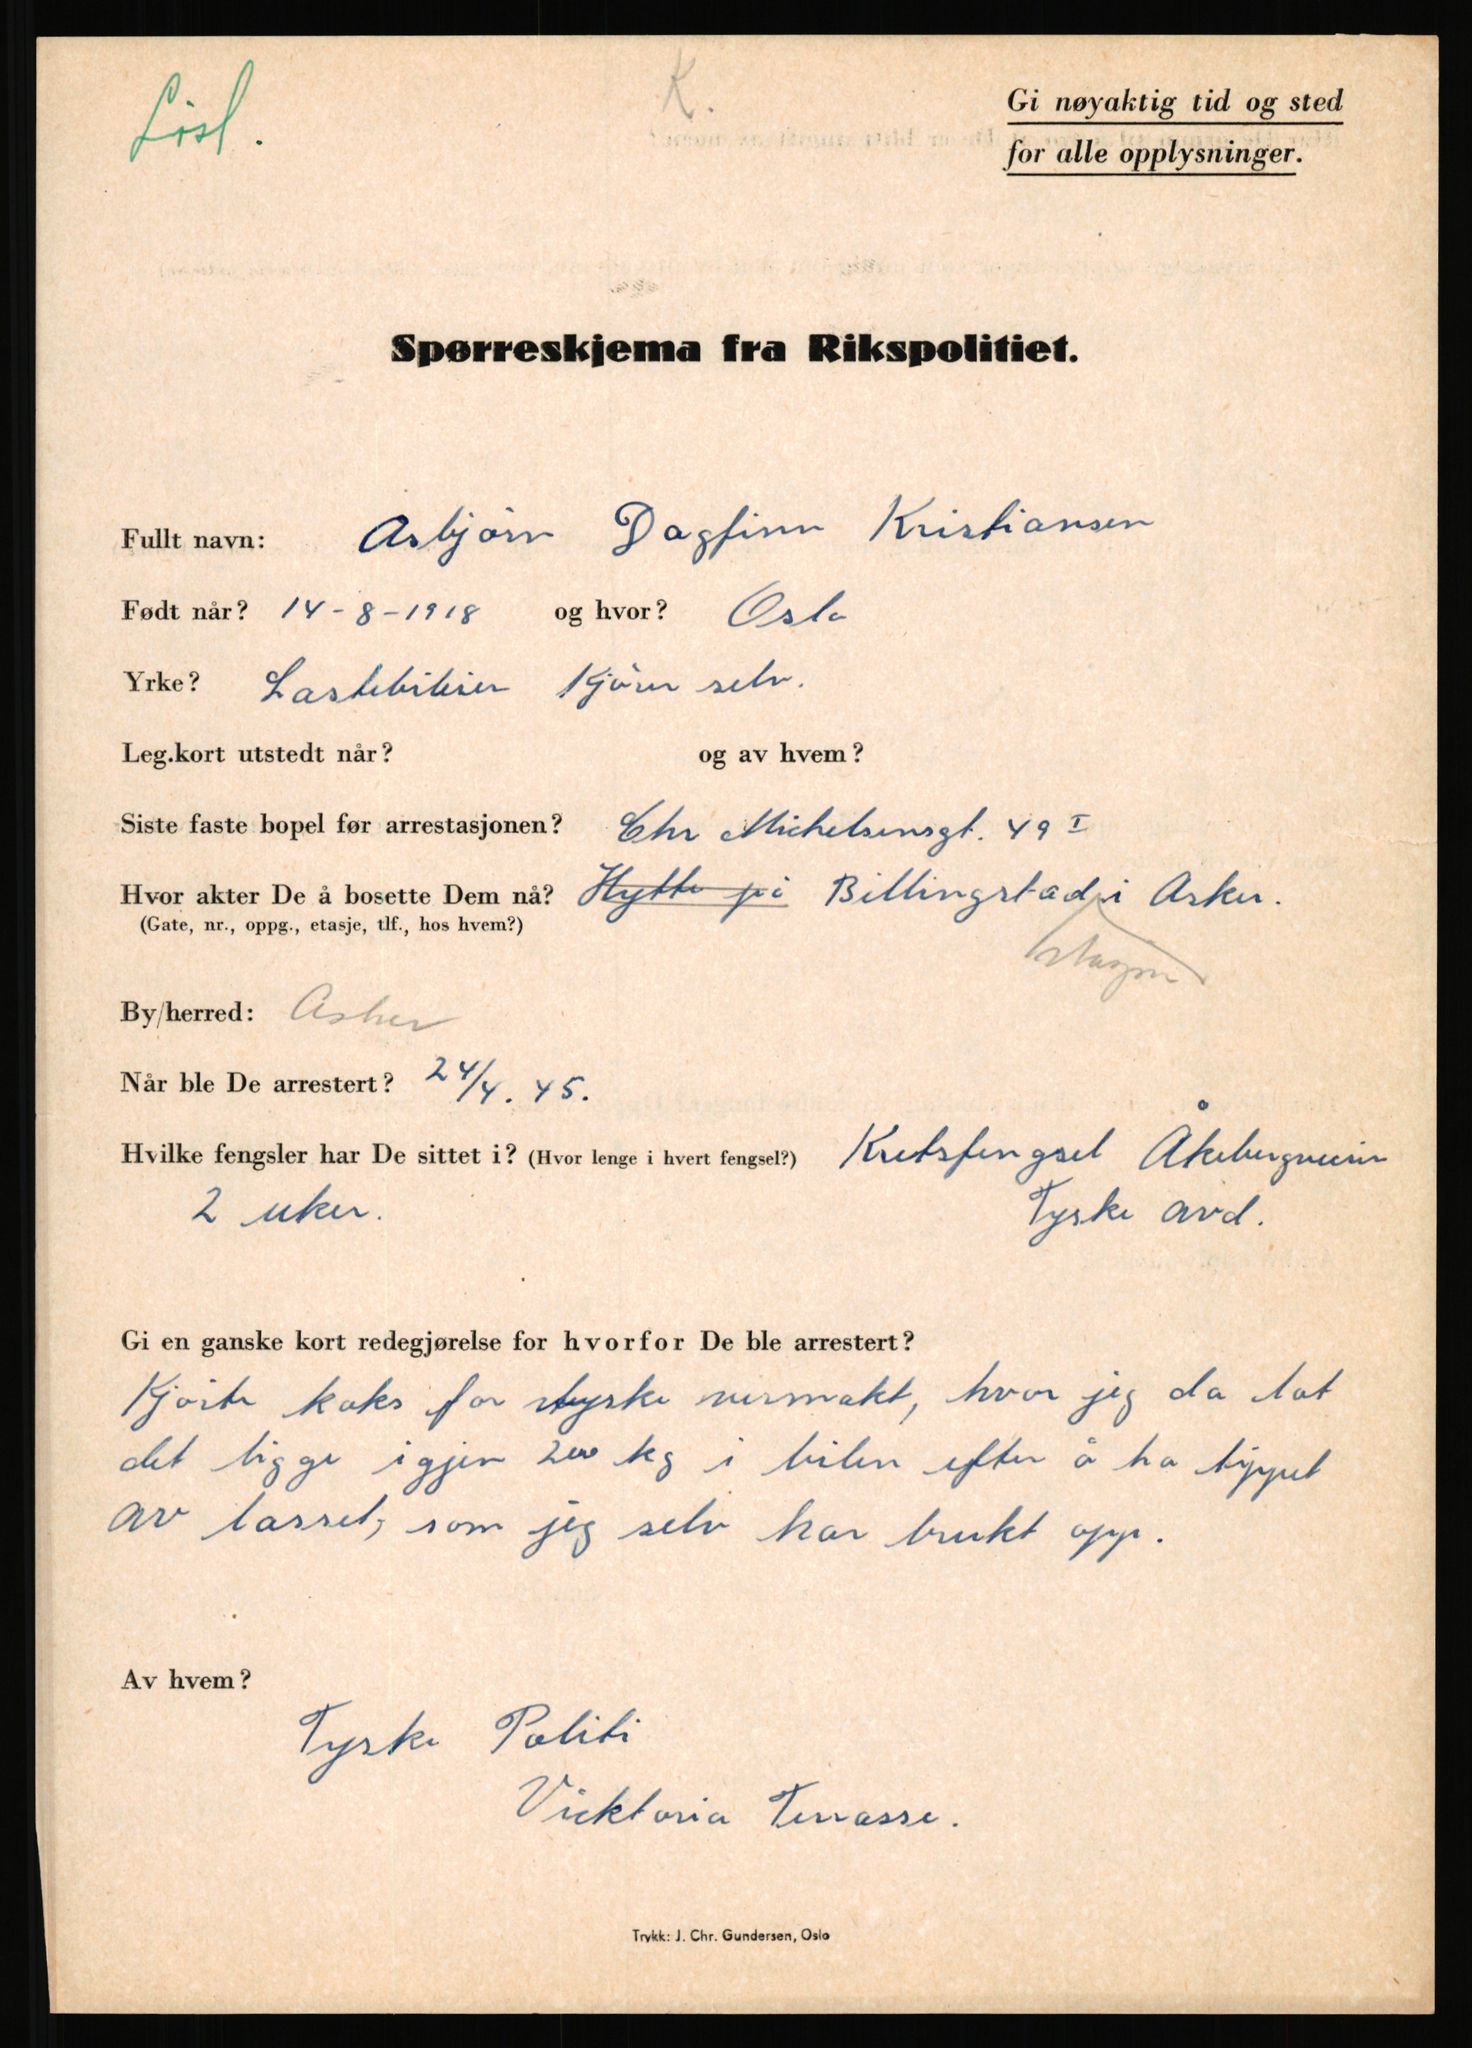 Lösl.
K.
Gi nøyaktig tid og sted
for alle opplysninger.
Spørreskjema fra Rikspolitiet.
Fullt navn: Asbjörn Dagfinn Kristiansen
Født når? 14-8-1918 og hvor? Oslo
Yrke? Lastebileier Kjörer selv.
Leg.kort utstedt når? og av hvem?
Siste faste bopel før arrestasjonen? Chr Michelsensgt. 49 I
Hvor akter De å bosette Dem nå? Hytte på Billingstad i Asker.
(Gate, nr., oppg., etasje, tlf., hos hvem?)
By/herred: Asker
Når ble De arrestert? 24/4. 45.
Hvilke fengsler har De sittet i? (Hvor lenge i hvert fengsel?) Kretsfengsel Åkebergveien
2 uker. Tyske avd.
Gi en ganske kort redegjørelse for hvorfor De ble arrestert?
Kjörte koks for tyske vermakt, hvor jeg da lot
det ligge igjen 200 kg i bilen efter å ha tippet
av lasset, som jeg selv har brukt opp.
Av hvem?
Tyske Politi
Vicktoria Terrasse.
Trykk: J. Chr. Gundersen, Oslo